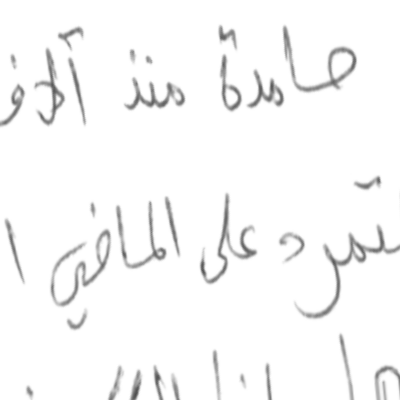 صامدة منذ آلاف
تمرد على الماضي ا